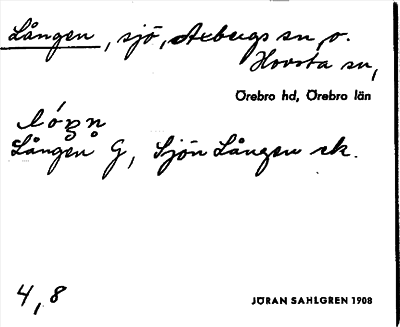 Lången, sjö, Axbergs sn, o.
Hovsta sn,
Örebro hd, Örebro län
lóŋn
Lången G, Sjön Lången ek.
4,8
JÖRAN SAHLGREN 1908